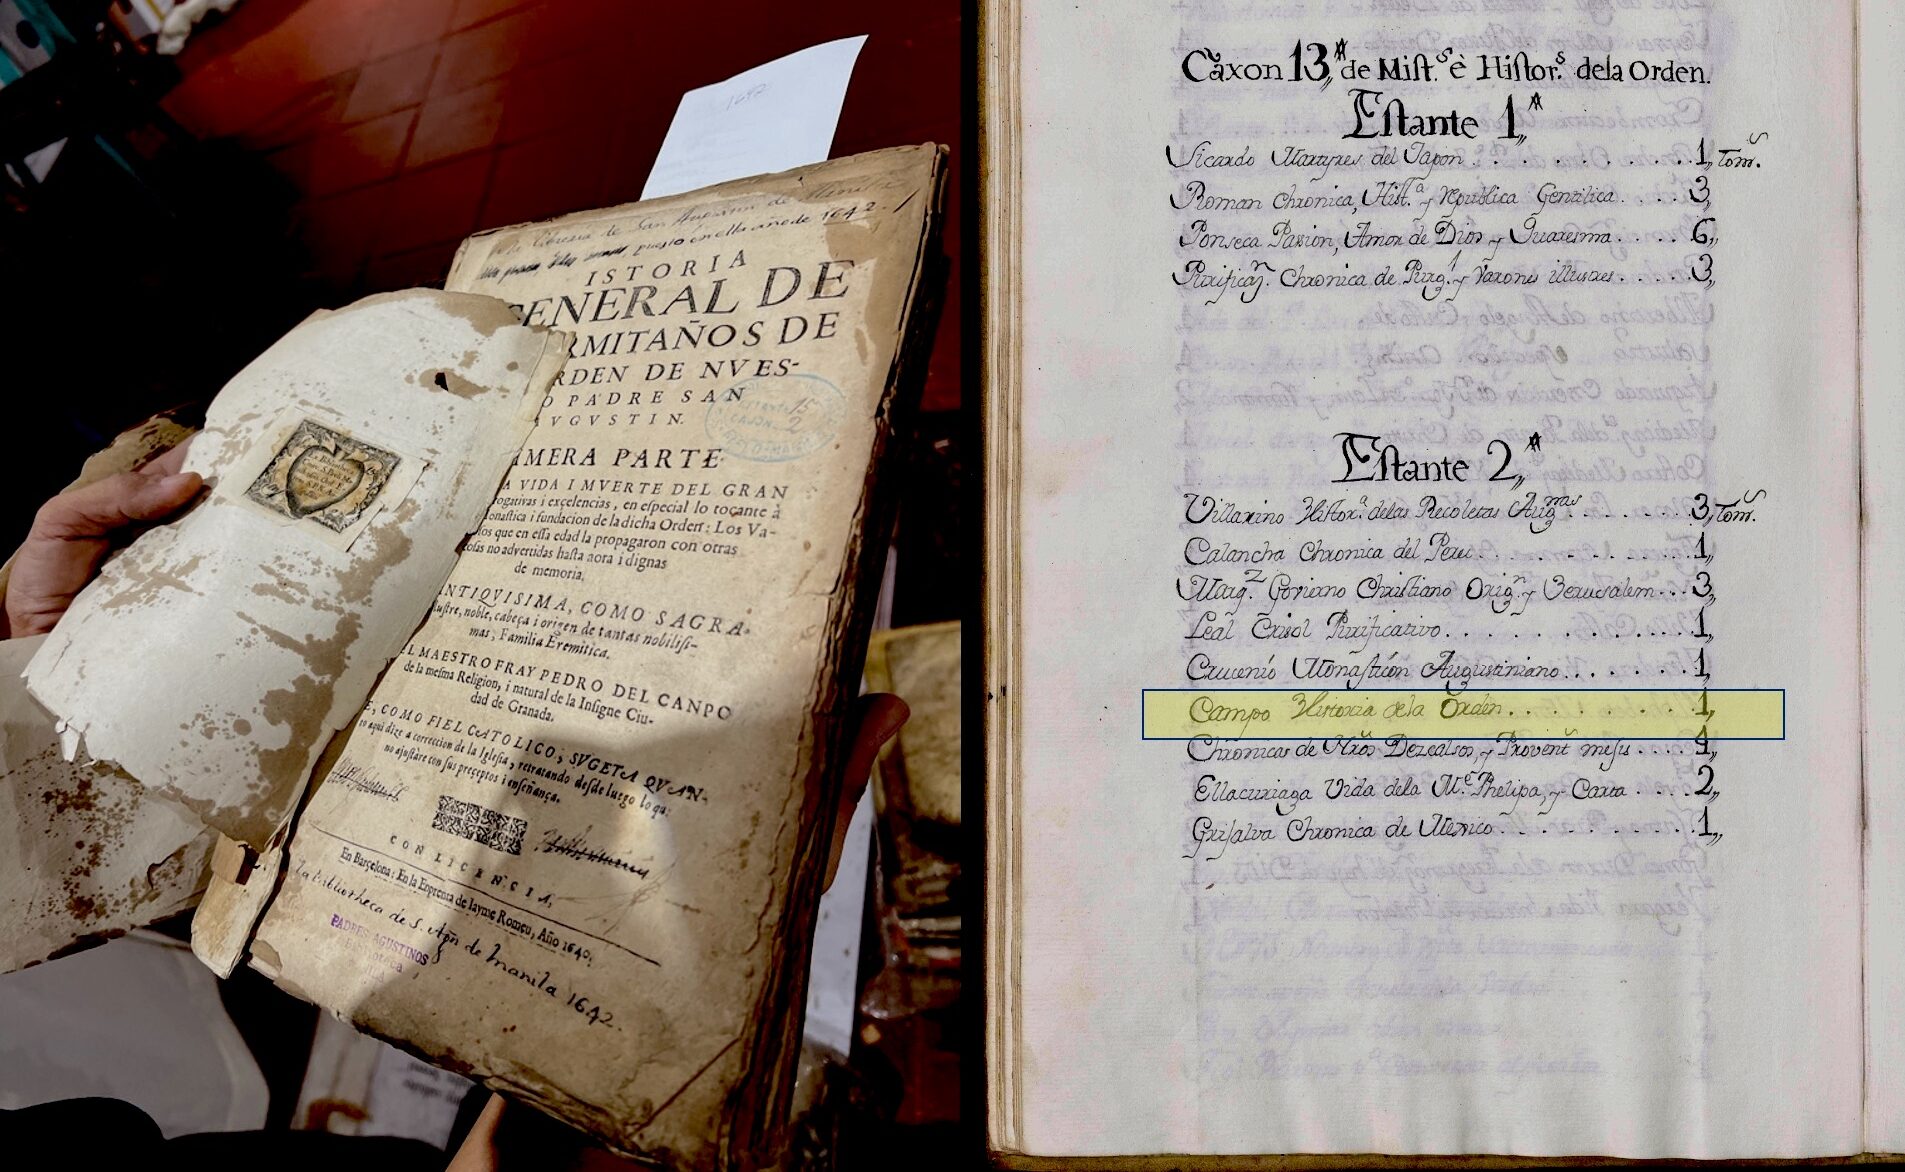 1642
de la libreria de San Augustin de Manila
puesto en ella año de 1642.
ISTORIA
GENERAL DE
RMITAÑOS DE
RDEN DE NVES-
O PADRE SAN
AVGVSTIN.
IMERA PARTE
A VIDA I MVERTE DEL GRAN
rogativas i excelencias, en especial lo tocante à
onastica i fundacion de la dicha Orden: Los Va-
que en essa edad la propagaron con otras
cosas no advertidas hasta aora i dignas
de memoria.
NTIQVISIMA, COMO SAGRA-
ustre, noble, cabeça i origen de tantas nobilissi-
mas, Familia Eremitica.
EL MAESTRO FRAY PEDRO DEL CANPO
de la mesma Religion, i natural de la Insigne Ciu-
dad de Granada.
E, COMO FIEL CATOLICO, SVGETA QVAN-
to aqui dize a correccion de la Iglesia, retratando desde luego lo que
no ajustare con sus preceptos i enseñança.
CON LICENCIA,
En Barcelona: En la Enprenta de Iayme Romeu, Año 1640.
la Bibliotheca de S. Agn de Manila 1642.
PADRES AGUSTINOS
Biblioteca
15
CAJON 2
Caxon 13,, de Mist.s è Histor.s dela Orden.
Estante 1,,
Sicardo Martyres del Japon . . . . . . . . . 1,, Tom.s
Roman Chronica, Hist.a y republica Gentilica . . . . 3,,
Fonseca Passion, Amor de Dios y Quaresma . . . . 6,,
Purificaz.n Chronica de Purg.l y Varones illustres . . . . 3,,
Estante 2,,
Villarino Histor.a delas Recoletas Aug.nas . . . . . . . 3,, Tom.s
Calancha Chronica del Peru . . . . . . . . . . . 1,,
Marq.z Govierno Christiano Orig.n y Jerusalem . . . 3,,
Leal Crisol Purificativo . . . . . . . . . . . . . 1,,
Crucenio Monasticon Augustiniano . . . . . . . 1,,
Campo Historia dela Orden . . . . . . . . . 1,,
Chronicas de Nros Dezcalsos, y Provent.s . . . 9,,
Ellacuriaga Vida dela M.e Phelipa, y Carta . . . . 2,,
Grijalva Chronica de Mexico . . . . . . . . . . 1,,